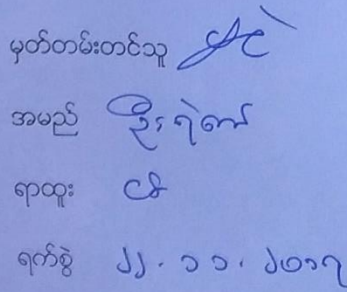 မှတ်တမ်းတင်သူ
အမည် ဦးရဲဇော်
ရာထူး
ရက်စွဲ ၂၂.၁၁.၂၀၁၇